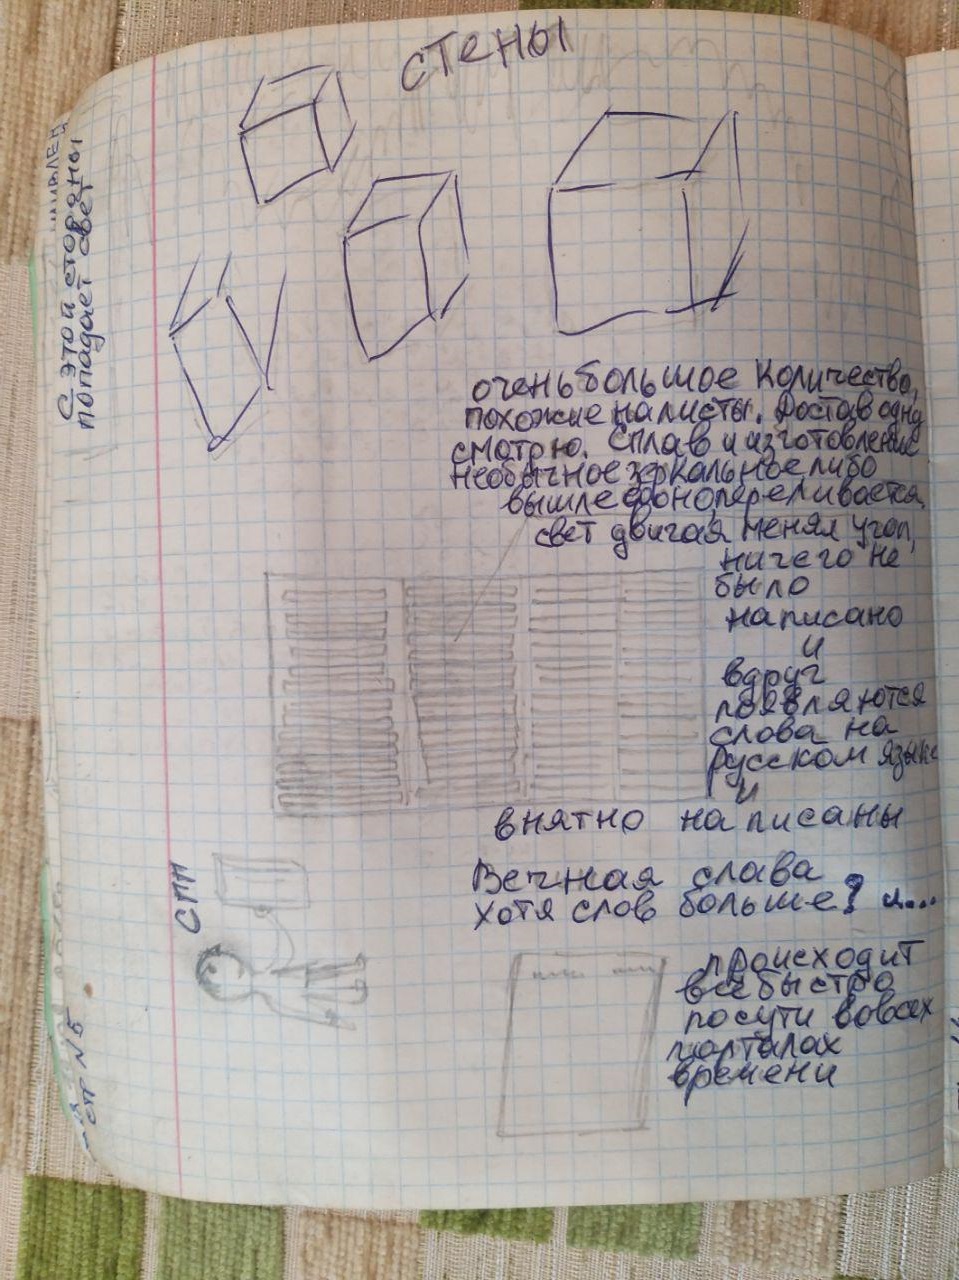 СТЕНЫ
С этой стороны
попадает свет
очень большое количество,
похожие на листы. Достав одну
смотрю. Сплав и изготовление
необычное зеркальное либо
вышлеебоно переливается,
свет двигая, менял угол,
ничего не
было
написано
и
вдруг
появляются
слова на
русском языке
и
внятно написаны
СПП
Вечная слава
хотя слов больше? и....
происходит
всё быстро
посути вовсех
порталах
времени
стр №5